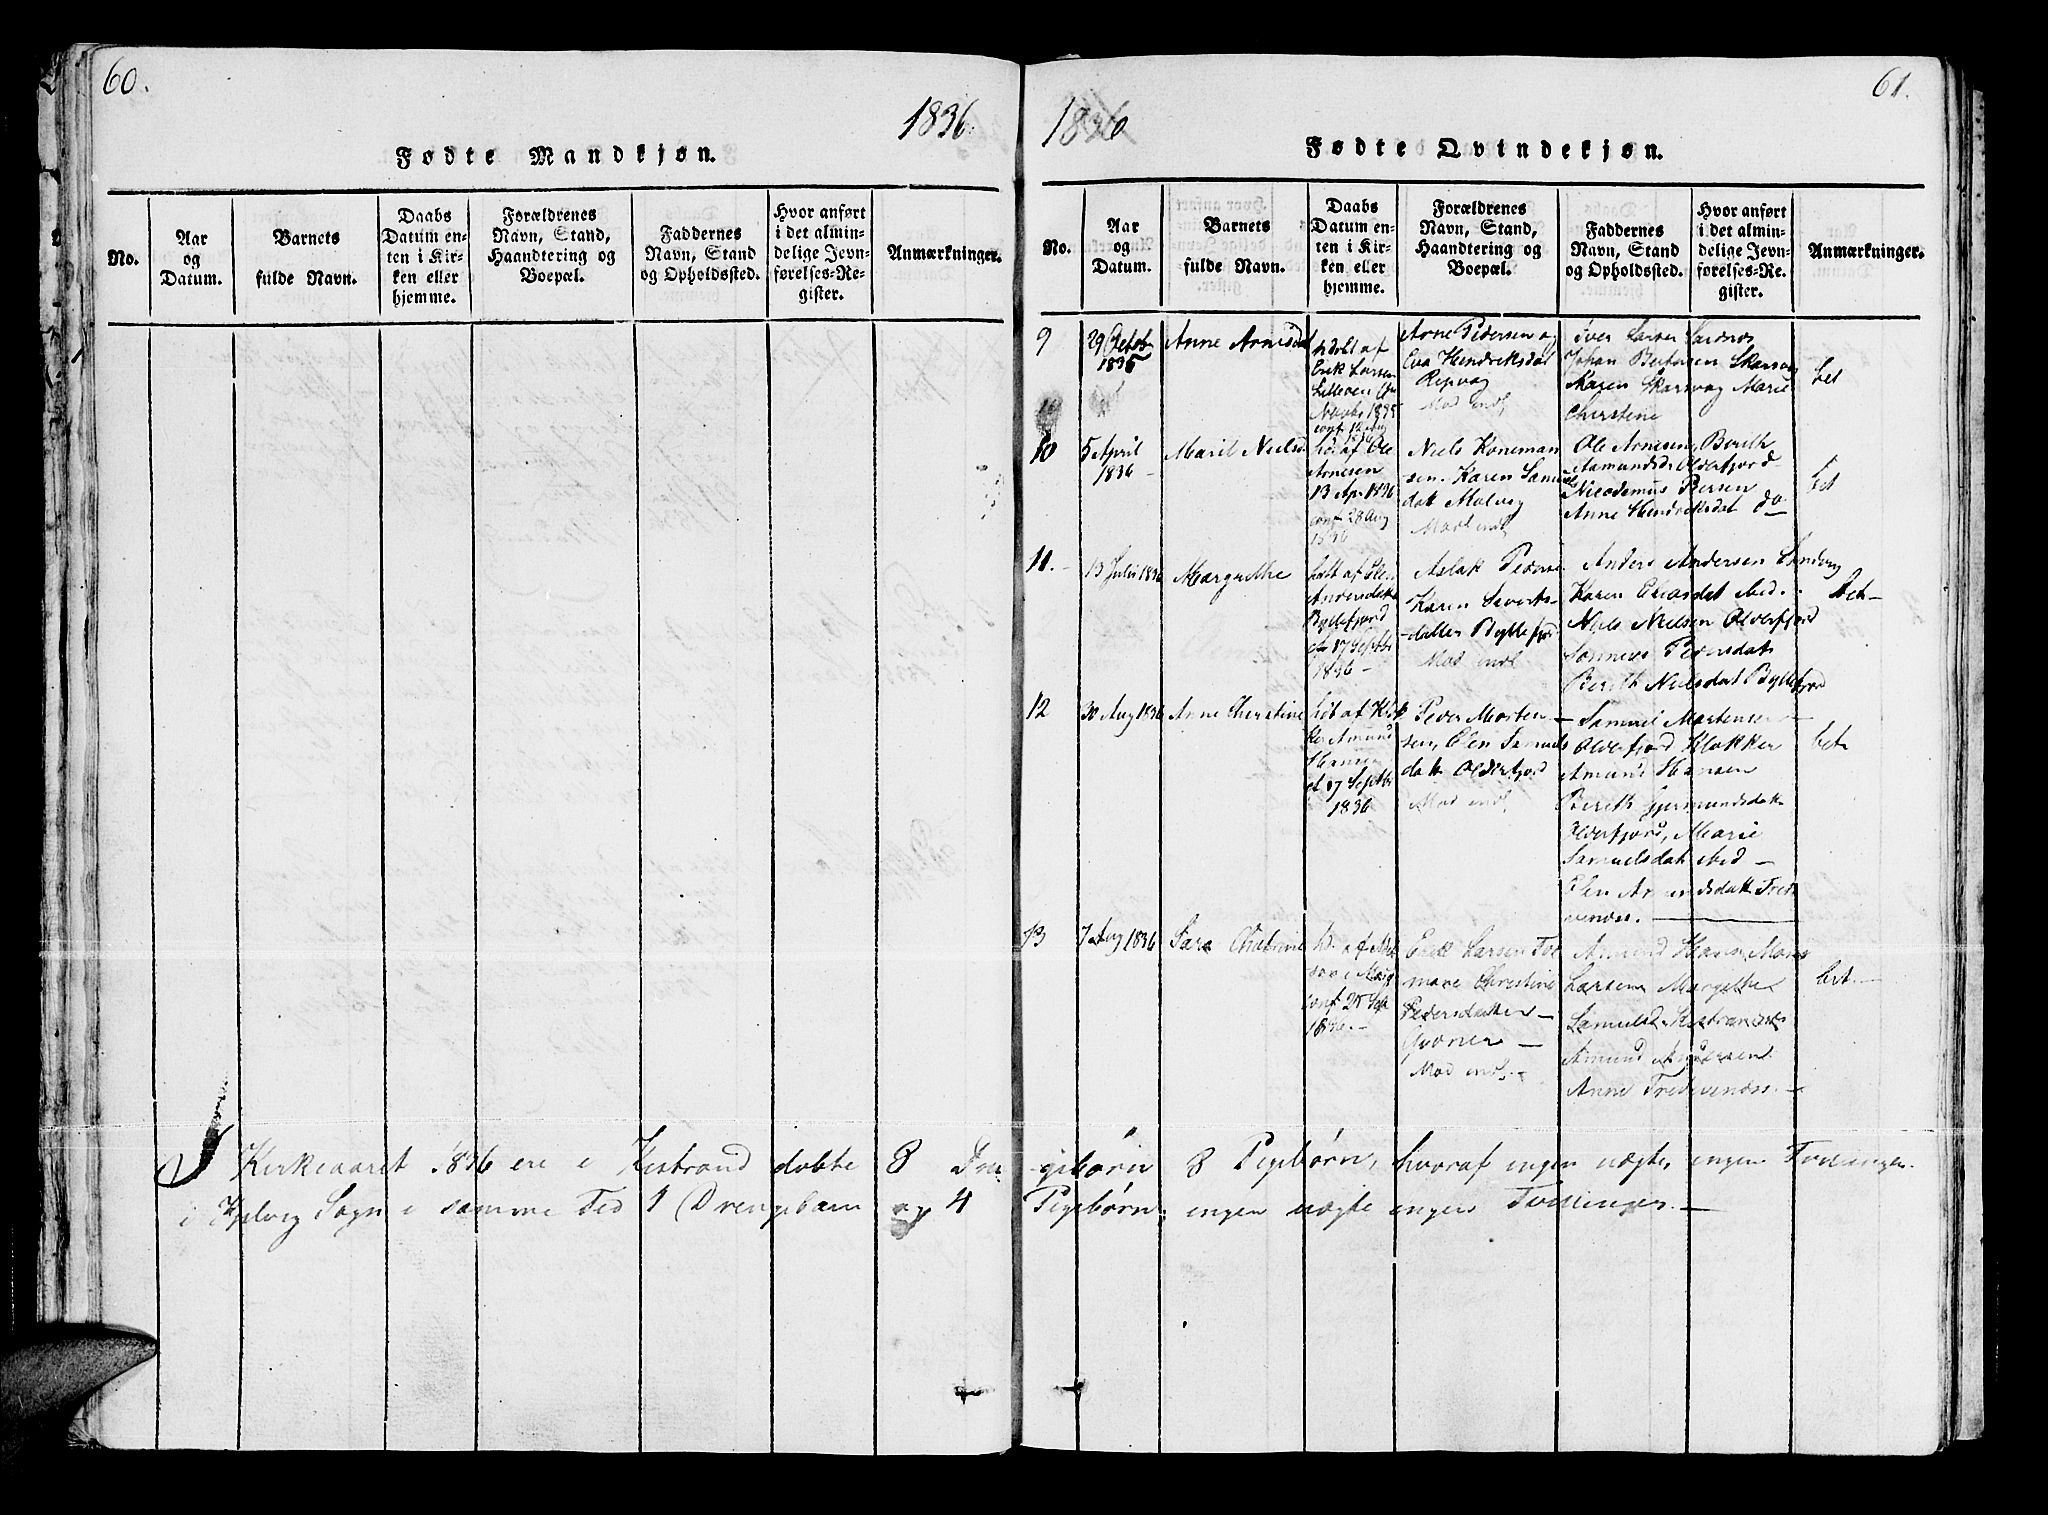 60.
1836.
Fødte Mandkjøn.
No.
Aar
og
Datum.
Barnets
fulde Navn.
Daabs
Datum en-
ten i Kir-
ken eller
hjemme.
Forældrenes
Navn, Stand,
Haandtering og
Boepæl.
Faddernes
Navn, Stand
og Opholdssted.
Hvor anført
i det almin-
delige Jevn-
førelses-Re-
gister.
Anmærkninger.
61.
1836
Fødte Qvindekjøn.
No.
Aar
og
Datum.
Barnets
fulde Navn.
Daabs
Datum en-
ten i Kir-
ken eller
hjemme.
Forældrenes
Navn, Stand,
Haandtering og
Boepæl.
Faddernes
Navn, Stand
og Opholdssted.
Hvor anført
i det almin-
delige Jevn-
førelses-Re-
gister.
Anmærkninger.
9
29 Octob
1835
Anne Arnesdat
hdøbt af
Erik Larsen
Novbr 1835
conf 12 Aug
Arne Pedersen og
Eva Hendriksdat
Repvag
Mod indl,
Iver Larsen Sardnes
Johan Berhasen Skarsvag
Karen Skarsvag Marie
Cherstine
bet
10
5 April
1836
Marit Nielsd
hd. af Ole
Arnesen
13 Apr 1836
conf 28 Aug
1836
Niels Koneman
sen. Karen Samuels
dat Molveg
Mod indl
Ole Arnesen, Berith
Aamundsd. Olderfjord
Nicodemus Persen
Anne Hendriksdat do
bet
11.
13 Julii 1836
Margrethe
hdt af Elen
Andersdatt
Byllefjord
d 17 Septbr
1836
Aslak Peders
Karen Siverts-
-datter Byllefjord
Mod indl
Anders Andersen Sandvig
Karen Eliasdat ibed.
Nyls Nielsen Olderfjord
Sonneve Pedersdat
Berith Nielsdat Byllefjord
bet
12
30 Aug 1836
Anne Cherstine
hdt af Klok
ker Amund
Hansen
d 17 Septbr
1836
Peder Morten
sen, Elen Samuels
dat Olderfjord
Mod indl,
Samuel Mortensen
Olderfjord Klokker
Amund Hansen
Berith Gjermundsdatt
Olderfjord, Marie
Samuelsdat ibed
Elen Amundsdatt Frede
venæs.
bet
13
7 Aug 1836
Sara Chatrine
conf 25 Sep
1836.
Erik Larsen
Christine
Pedersdatter
Qvæner
Mod indl,
Amund Hansen Mons
Larsen Margrethe
Samuelsd. Kistrand
Amund Andersen
Anne Fredevenæs.
bet.
I Kirkeaaret 1836 ere i Kistrand døbte 8 Dren
i Kjelvig Sogn i samme Tid 1 Drengebarn og 4
-gebørn 8 Pigebørn, hvoraf ingen uægte, ingen Tvillinger.
Pigebørn; ingen uægte ingen Tvillinger.